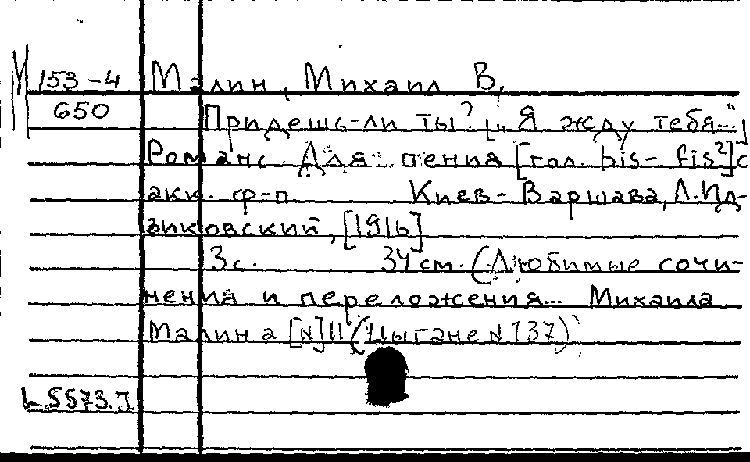 М 153-4 Малин, Михаил В.
650 Придешь-ли ты? [„Я жду тебя..."]
Романс. Для пения [гол. his- fis²] с
акк. ф-п. Киев-Варшава, Л. Ид-
зиковский, [1916]
3 с. 34 см. (Любимые сочи-
нения и переложения... Михаила
Малина [N] 11 (Цыгане N 137)
L.5573.I